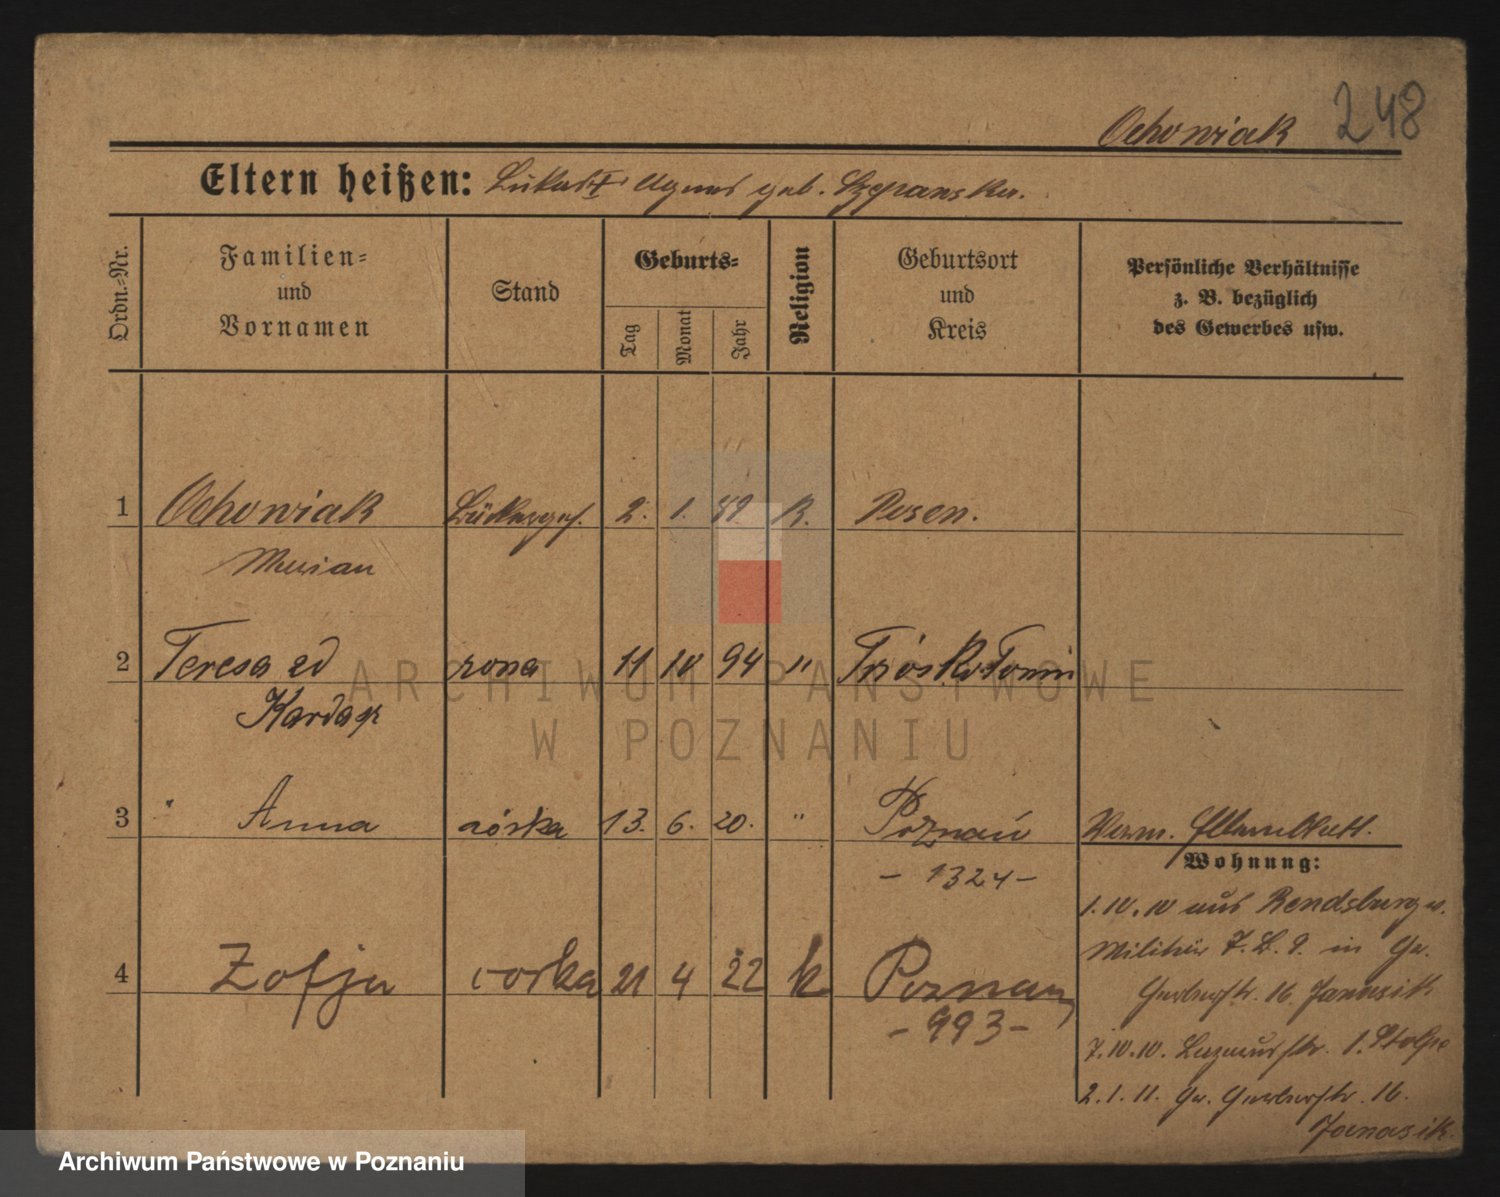 248
Ochowiak
Eltern heißen: Lukas u. Agnes geb. Szepanska.
Ordn.-Nr.
Familien- und Vornamen
Stand
Geburts-
Tag
Monat
Jahr
Religion
Geburtsort und Kreis
Persönliche Verhältnisse
z. B. bezüglich
des Gewerbes usw.
1 Ochowiak Bäckerges. 2. 1. 89 k. Posen.
Marian
2 Teresa zd żona 11 10 94 "
3 " Anna córka 13. 6. 20. " Poznań
- 1324 -
Wohnung:
1.10.10 aus Rendsburg v.
Militär in Gr.
4 Zofja córka 21 4 22 k Poznań
Gerberstr. 16. Janasik
- 993 -
7.10.10. 1. Stolpe
2.1.11. Gr. Gerberstr. 16.
Janasik.
ARCHIWUM PAŃSTWOWE
W POZNANIU
Archiwum Państwowe w Poznaniu